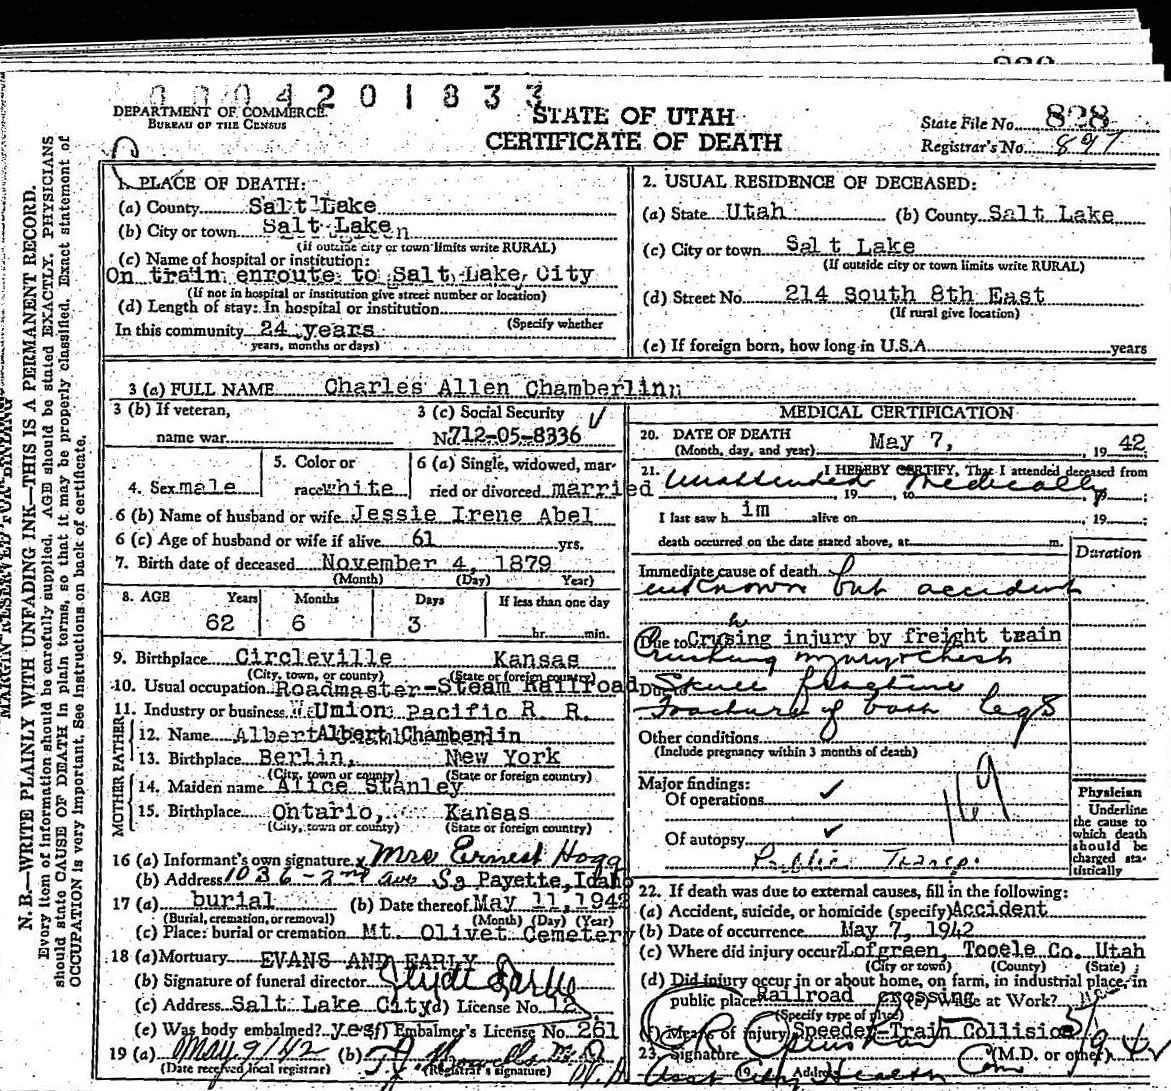 0004201833
DEPARTMENT OF COMMERCE
BUREAU OF THE CENSUS
STATE OF UTAH
CERTIFICATE OF DEATH
State File No. 828
Registrar's No. 897
MARGIN RESERVED FOR BINDING
N. B.—WRITE PLAINLY WITH UNFADING INK—THIS IS A PERMANENT RECORD.
Every item of information should be carefully supplied. AGE should be stated EXACTLY. PHYSICIANS
should state CAUSE OF DEATH in plain terms, so that it may be properly classified. Exact statement of
OCCUPATION is very important. See instructions on back of certificate.
1. PLACE OF DEATH:
(a) County Salt Lake
(b) City or town Salt Lake
(If outside city or town limits write RURAL)
(c) Name of hospital or institution:
On train enroute to Salt Lake City
(If not in hospital or institution give street number or location)
(d) Length of stay: In hospital or institution
(Specify whether
In this community 24 years
years, months or days)
2. USUAL RESIDENCE OF DECEASED:
(a) State Utah (b) County Salt Lake
(c) City or town Salt Lake
(If outside city or town limits write RURAL)
(d) Street No. 214 South 8th East
(If rural give location)
(e) If foreign born, how long in U.S.A. years
3 (a) FULL NAME Charles Allen Chamberlin
3 (b) If veteran,
name war
3 (c) Social Security
N712-05-8336
4. Sex male
5. Color or
race white
6 (a) Single, widowed, mar-
ried or divorced married
6 (b) Name of husband or wife Jessie Irene Abel
6 (c) Age of husband or wife if alive 61 yrs.
7. Birth date of deceased November 4, 1879
(Month) (Day) Year)
8. AGE Years Months Days If less than one day
62 6 3 hr. min.
9. Birthplace Circleville Kansas
(City, town, or county) (State or foreign country)
10. Usual occupation Roadmaster-Steam Railroad
11. Industry or business Union Pacific R. R.
FATHER
12. Name Albert Albert Chamberlin
13. Birthplace Berlin, New York
(City, town or county) (State or foreign country)
MOTHER
14. Maiden name Alice Stanley
15. Birthplace Ontario, Kansas
(City, town or county) (State or foreign country)
16 (a) Informant's own signature x Mrs Ernest Hogg
(b) Address 1036 - 2nd Ave So Payette, Idaho
17 (a) burial (b) Date thereof May 11, 1942
(Burial, cremation, or removal) (Month) (Day) (Year)
(c) Place: burial or cremation Mt. Olivet Cemetery
18 (a) Mortuary EVANS AND EARLY
(b) Signature of funeral director
(c) Address Salt Lake City (d) License No. 12
(e) Was body embalmed? yes (f) Embalmer's License No. 261
19 (a) May 9/42 (b)
(Date received local registrar) (Registrar's signature)
MEDICAL CERTIFICATION
20. DATE OF DEATH
(Month, day, and year) May 7, 19 42
21. I HEREBY CERTIFY, That I attended deceased from
Unattended Medically , 19 , to , 19 ;
I last saw h im alive on , 19 ;
death occurred on the date stated above, at m.
Duration
Immediate cause of death
unknown but accident
Due to Crushing injury by freight train
Crushing injury chest
Due to Skull fracture
Fracture of both legs
Other conditions
(Include pregnancy within 3 months of death)
Major findings:
Of operations ✓
Of autopsy ✓
169
Public Transp.
Physician
Underline
the cause to
which death
should be
charged sta-
tistically
22. If death was due to external causes, fill in the following:
(a) Accident, suicide, or homicide (specify) Accident
(b) Date of occurrence May 7, 1942
(c) Where did injury occur? Lofgreen, Tooele Co. Utah
(City or town) (County) (State)
(d) Did injury occur in or about home, on farm, in industrial place, in
public place Railroad crossing While at Work?
(Specify type of place)
(e) Means of injury Speeder-Train Collision
23. Signature (M.D. or other)
Address Asst City Health Com